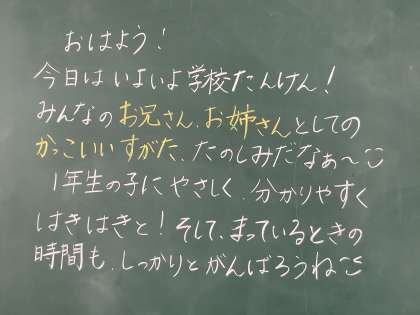 おはよう!
今日はいよいよ学校たんけん!
みんなのお兄さん、お姉さんとしての
かっこいいすがた、たのしみだなぁ〜
1年生の子にやさしく、分かりやすく
はきはきと!そして、まっているときの
時間も、しっかりとがんばろうね